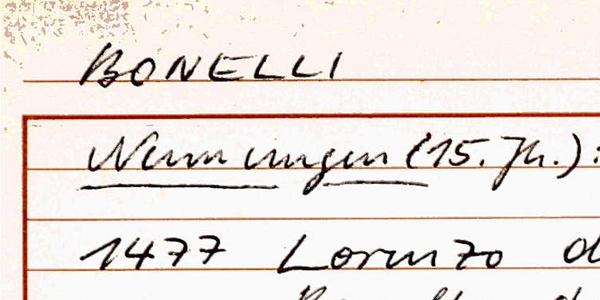 BONELLI
Nennungen (15. Jh.):
1477 Lorenzo d